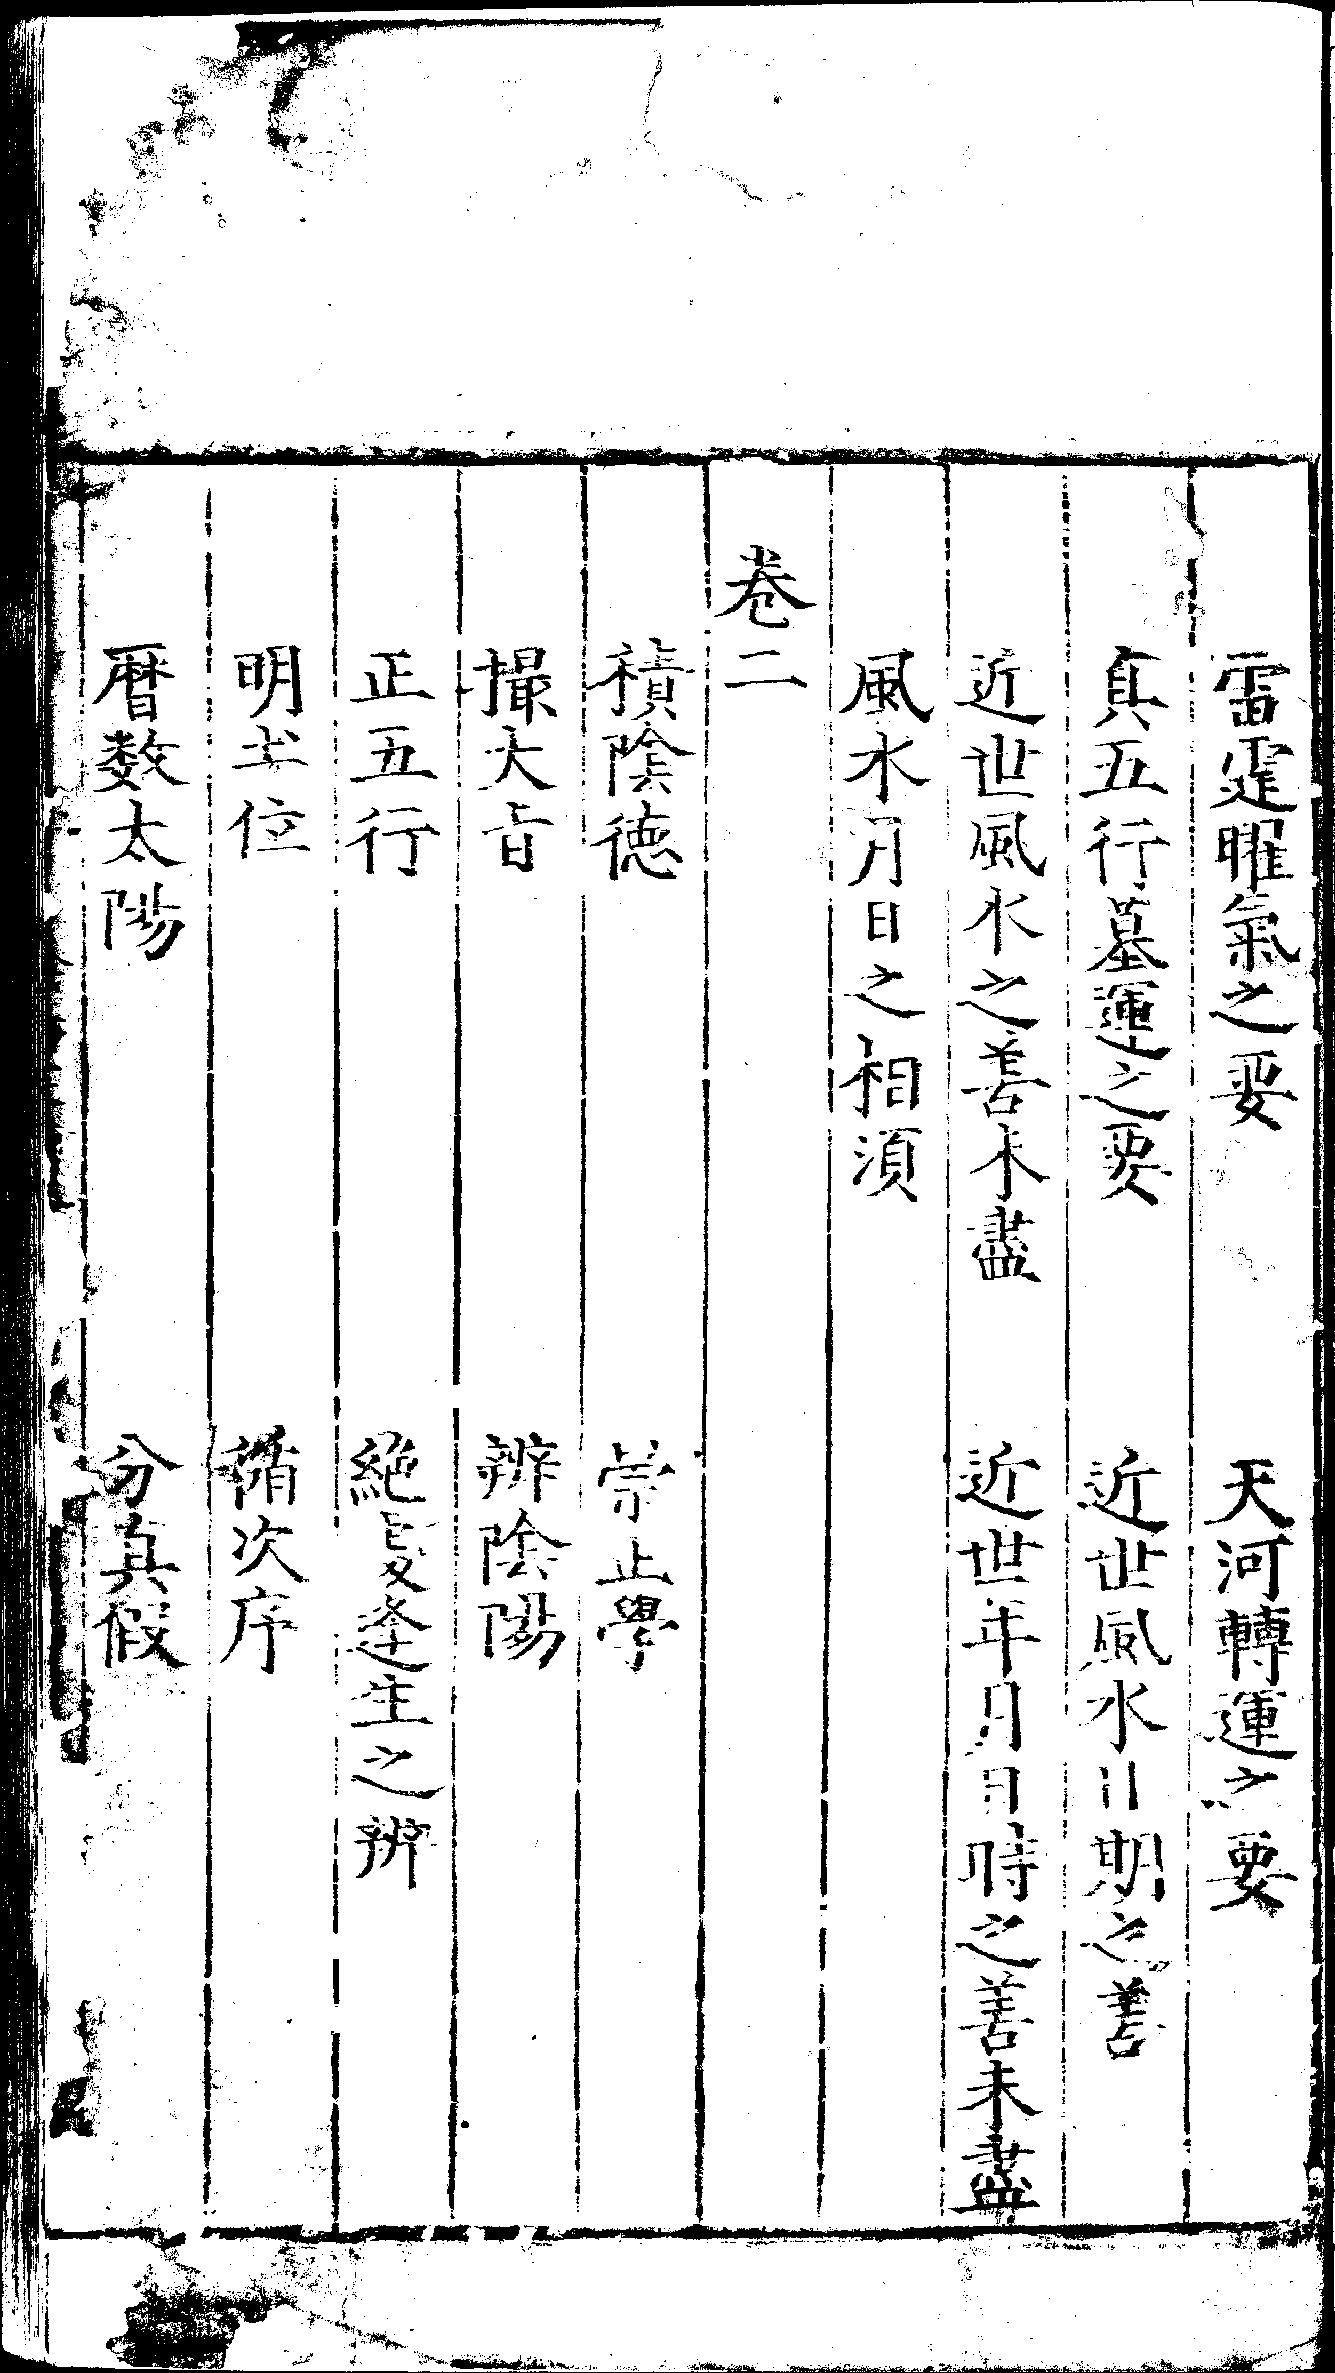 雷霆曜氣之要　天河轉運之要
真五行墓運之要　近世風水日期之善
近世風水之善未盡　近世年月日時之善未盡
風水月日之相須
卷二
積陰德　崇正學
撮大旨　辨陰陽
正五行　絕處逢生之辨
明坐位　循次序
曆数太陽　分真假